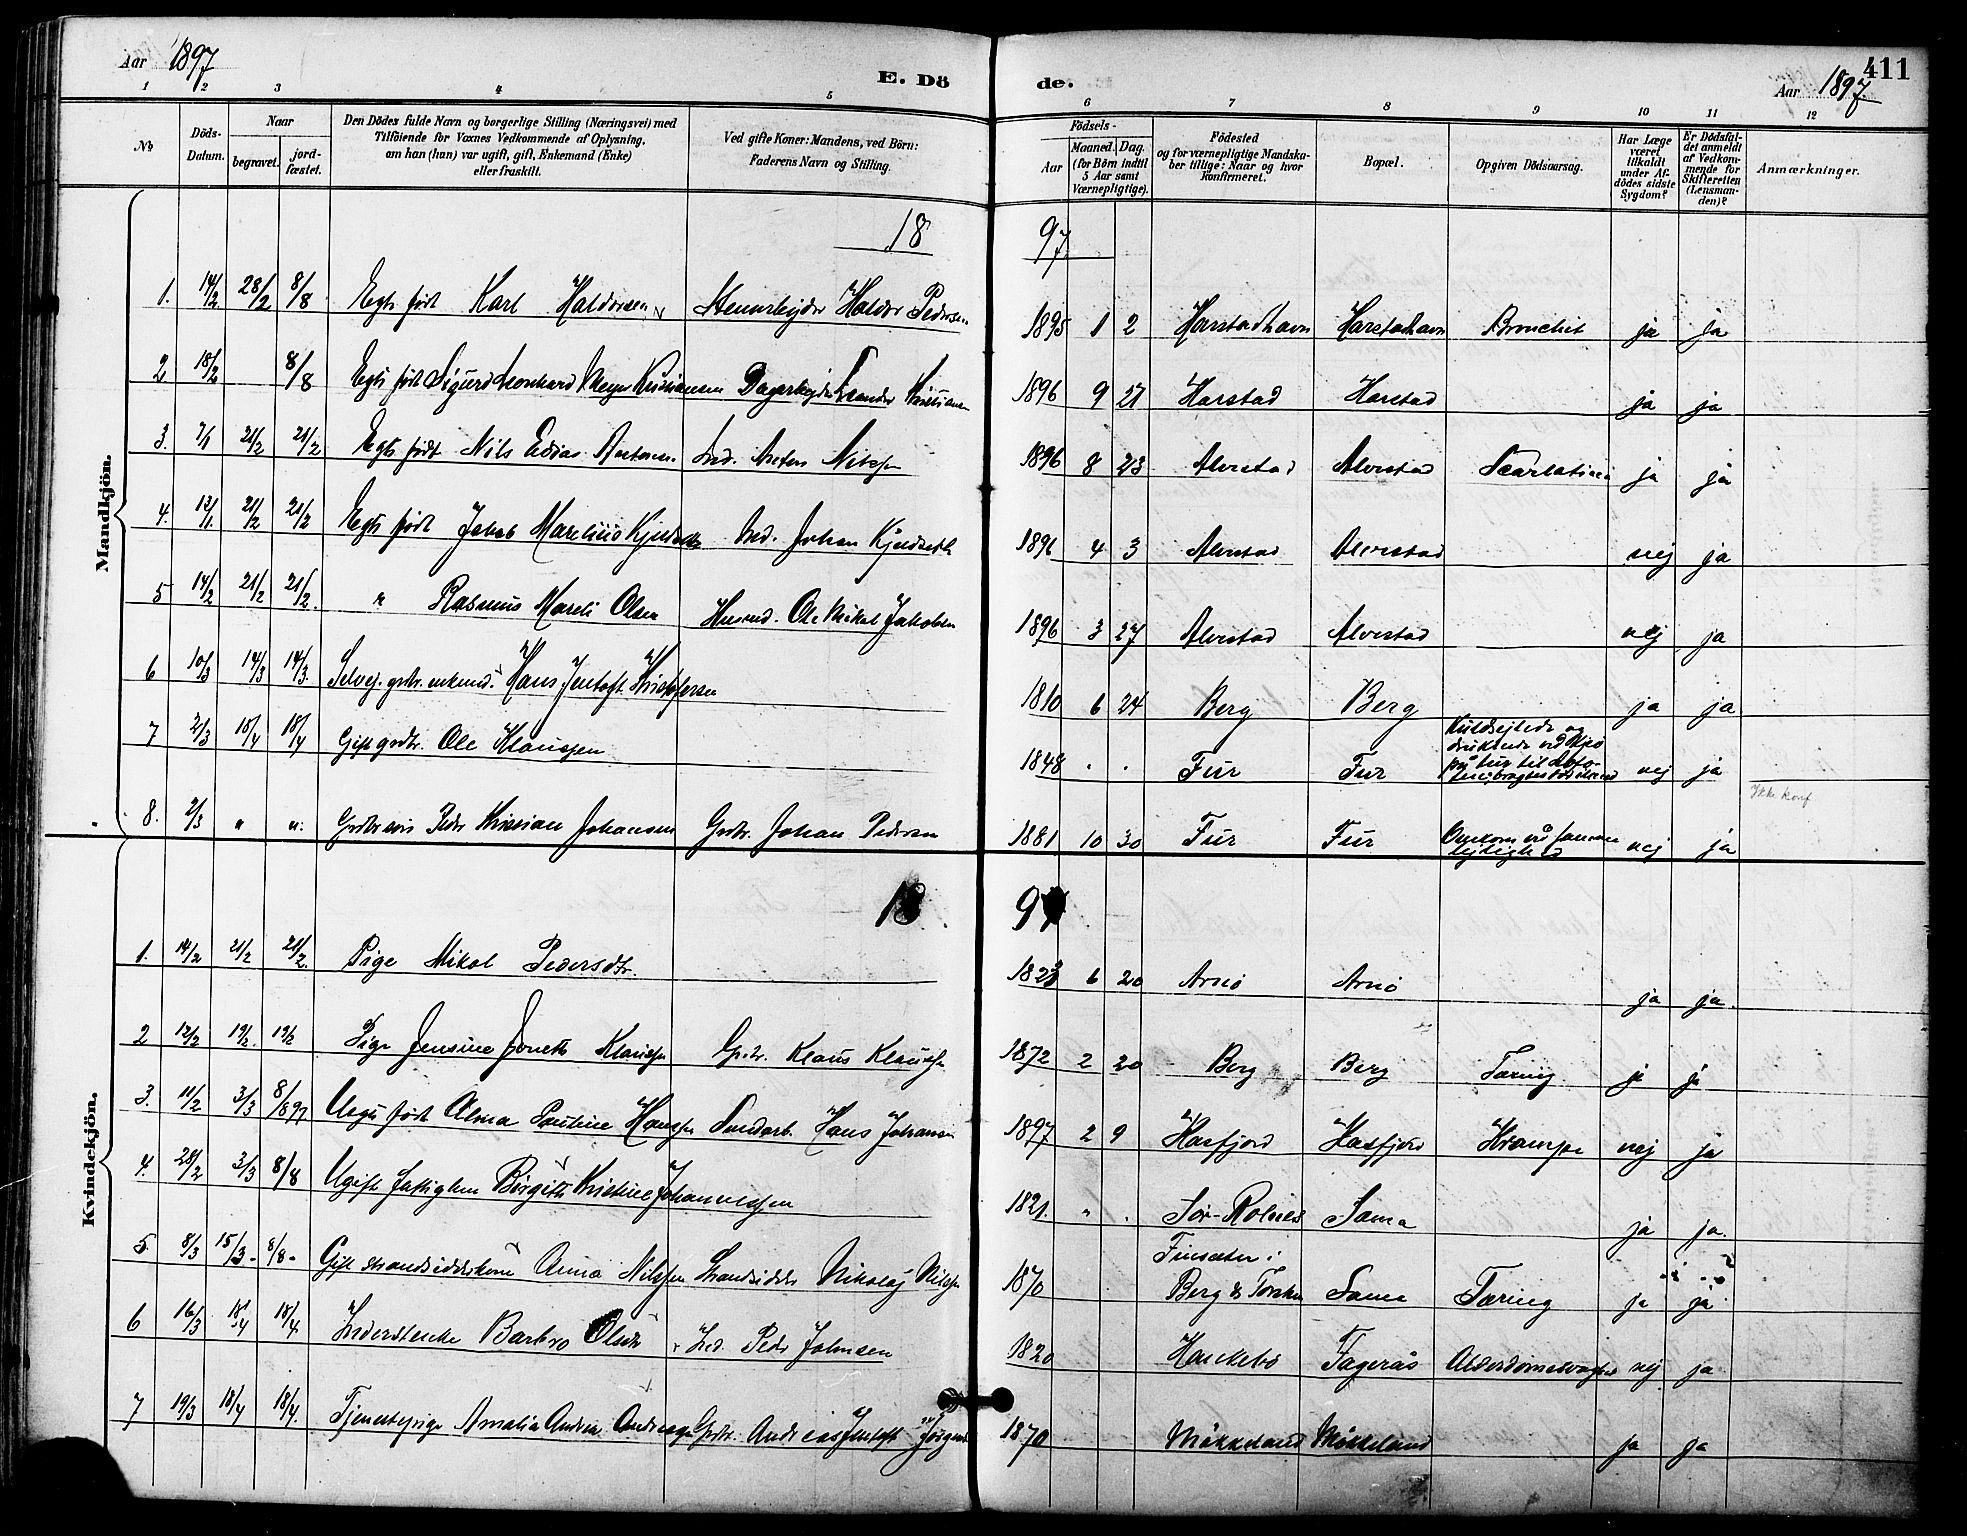 Aar 1897
E. Dö
de.
Aar 1897
411
1 2 3 4 5 6 7 8 9 10 11 12
No
Döds-Datum.
Naar
begravet.
jord-fæstet.
Den Dödes fulde Navn og borgerlige Stilling (Næringsvei) med
Tilföiende for Voxnes Vedkommende af Oplysning.
om han (hun) var ugift, gift, Enkemand (Enke)
eller fraskilt.
Ved gifte Koner: Mandens, ved Börn:
Faderens Navn og Stilling.
Födsels-
Aar
Maaned.
Dag.
(for Börn indtil
5 Aar samt
Værnepligtige).
Födested
og for værnepligtige Mandska-
ber tillige: Naar og hvor
konfirmeret.
Bopæl.
Opgiven Dödsaarsag.
Har Læge
været
tilkaldt
under Af-
dödes sidste
Sygdom?
Er Dödsfal-
det anmeldt
af Vedkom-
mende for
Skifteretten
(Lensman-
den)?
Anmærkninger.
Mandkjön.
18 97
1. 14/2 28/2 8/8 Egte født Karl Haldorsen Stenarbejder Haldor Pedersen 1895 1 2 Harstadhavn Harstadhavn Bronchit ja ja
2 18/2 8/8 Egte født Sigurd Leonhard Meyer Kristiansen Dagarbejder Kristiansen 1896 9 21 Harstad Harstad ja ja
3. 7/1 21/2 21/2 Egte født Nils Edias Antonsen Ind. Anton Nilssen 1896 8 23 Alvestad Alvestad Scarlatina ja ja
4. 12/1. 21/2 21/2 Egte født Jakob Marelius Kjeldseth Ind. Johan Kjeldseth 1896 4 3 Alvestad Alvestad nej ja
5 14/2 21/2 21/2. " Rasmus Mareli Olsen Husmd. Ole Mikal Jakobsen 1896 3 27 Alvestad Alvestad nej ja
6 10/3 14/3 14/3. Selvej. grdbr. enkemd. Hans Jentoft Kristofersen 1810 6 24 Berg Berg ja ja
7 2/3 18/4 18/4 Gift grdbr. Ole Klaussen 1848 . . Fur Fur Kuldsejlede og
druknede ved
på tur til Lofo-
nej ja
Ikke konf
8. 2/3 " " Grdbr søn Peder Kristian Johansen Grdbr. Johan Pedersen 1881 10 30 Fur Fur Omkom ved samme
lejlighed nej ja
Kvindekjön.
18 97
1. 14/2 21/2 21/2. Pige Mikal Pedersdtr 6 20 Arnö Arnö ja ja.
2 12/2 19/2. 19/2 Pige Jensine Klaussen Grdbr. Klaus Klaussen 1872 2 20 Berg Berg Tæring ja ja
3. 11/2 3/3 8/8 97 Uegte født Alma Pauline Hanssen Hans Johansen 1897 2 9 Kasfjord Kasfjord Krampe nej ja
4. 28/2 3/3 8/8 Ugift fattiglem Birgitte Kristine Johannessen 1821. " . Sör-Rolnes Sama ja ja.
5. 8/3 15/3 - 8/8 - Gift strandsidderkone Anna Nilssen Strandsidder Nikolaj Nilssen 1870 Finsæter i
Berg & Torsken Sama Tæring ja ja
6 16/3 18/4 18/4 Inderstenke Barbro Olsdtr Ind. Peder Johnsen 1820 Fagerås Alderdomssvaghed nej ja
7 19/3 18/4 18/4. Tjenestepige Amalia Andrea Andreassen Grdbr. Andreas Jentoft Jörgensen 1870 Møkkeland Møkkeland ja ja